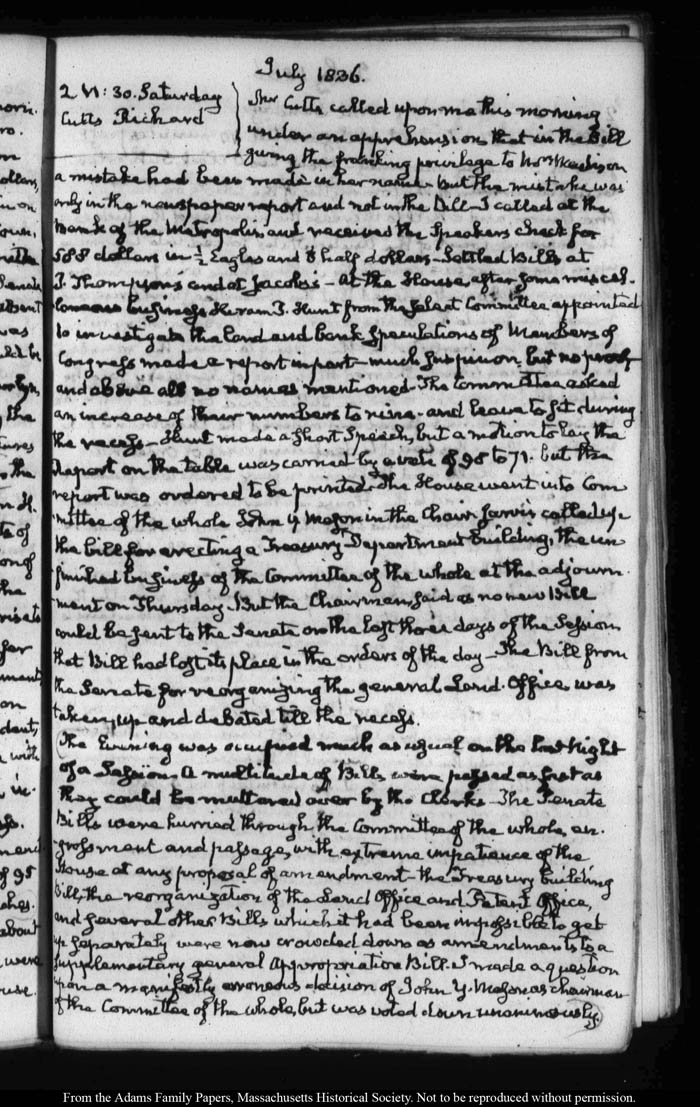 July 1836.
2 VI: 30. Saturday
Cutts Richard
Mr Cutts called upon me this morning
under an apprehension that in the Bill
giving the franking privilege to Mrs Madison
a mistake had been made in her name. but the mistake was
only in the newspaper report and not in the Bill. I called at the
bank of the Metropolis and received the Speakers check for
588 dollars in ½ Eagles and 8 half dollars. Settled Bills at
J. Thompson's and at Jacobs's. At the House, after some miscel-
laneous business Hiram J. Hunt from the Select Committee appointed
to investigate the land and bank speculations of Members of
Congress made a report in part. much suspicion, but no proof
and above all no names mentioned. The Committee asked
an increase of their numbers to nine. and leave to sit during
the recess. Hunt made a short Speech, but a motion to lay the
report on the table was carried by a vote of 98 to 71. but the
report was ordered to be printed. The House went into Com
mittee of the whole John Y Mason in the Chair. Jarvis called up
the bill for erecting a Treasury Department building, the un
finished business of the Committee of the whole at the adjourn.
ment on Thursday. But the Chairman said as no new Bill
could be sent to the Senate on the last three days of the Session
that Bill had lost its place in the orders of the day. The Bill from
the Senate for reorganizing the general Land. Office was
taken up and debated till the recess.
The Evening was occupied much as usual on the last Night
of a Session. A multitude of Bills were passed as fast as
they could be muttered over by the Clerks. The Senate
Bills were hurried through the Committee of the whole, en-
grossment and passage, with extreme impatience of the
House at any proposal of amendment. the Treasury building
Bill, the reorganization of the Land Office and Patent Office,
and several other Bills which it had been impossible to get
up separately were now crowded down as amendments to a
supplementary general Appropriation Bill. I made a question
upon a manifestly erroneous decision of John Y. Mason as chairman
of the Committee of the whole, but was voted down unanimously.
From the Adams Family Papers, Massachusetts Historical Society. Not to be reproduced without permission.